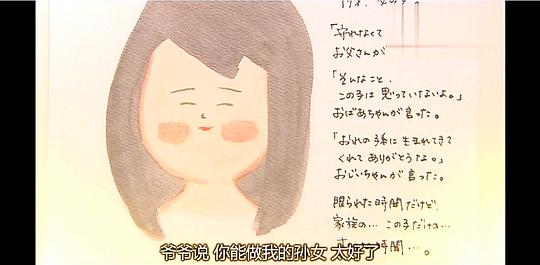 「守れなくて
お父さんが
「そんなこと、
この子は思っていないよ。」
おばあちゃんが言った。
「おれの孫に生まれてきて
くれてありがとうな。」
おじいちゃんが言った。
限られた時間だけど、
家族の…この子だけの…
時間…。
爷爷说 你能做我的孙女 太好了